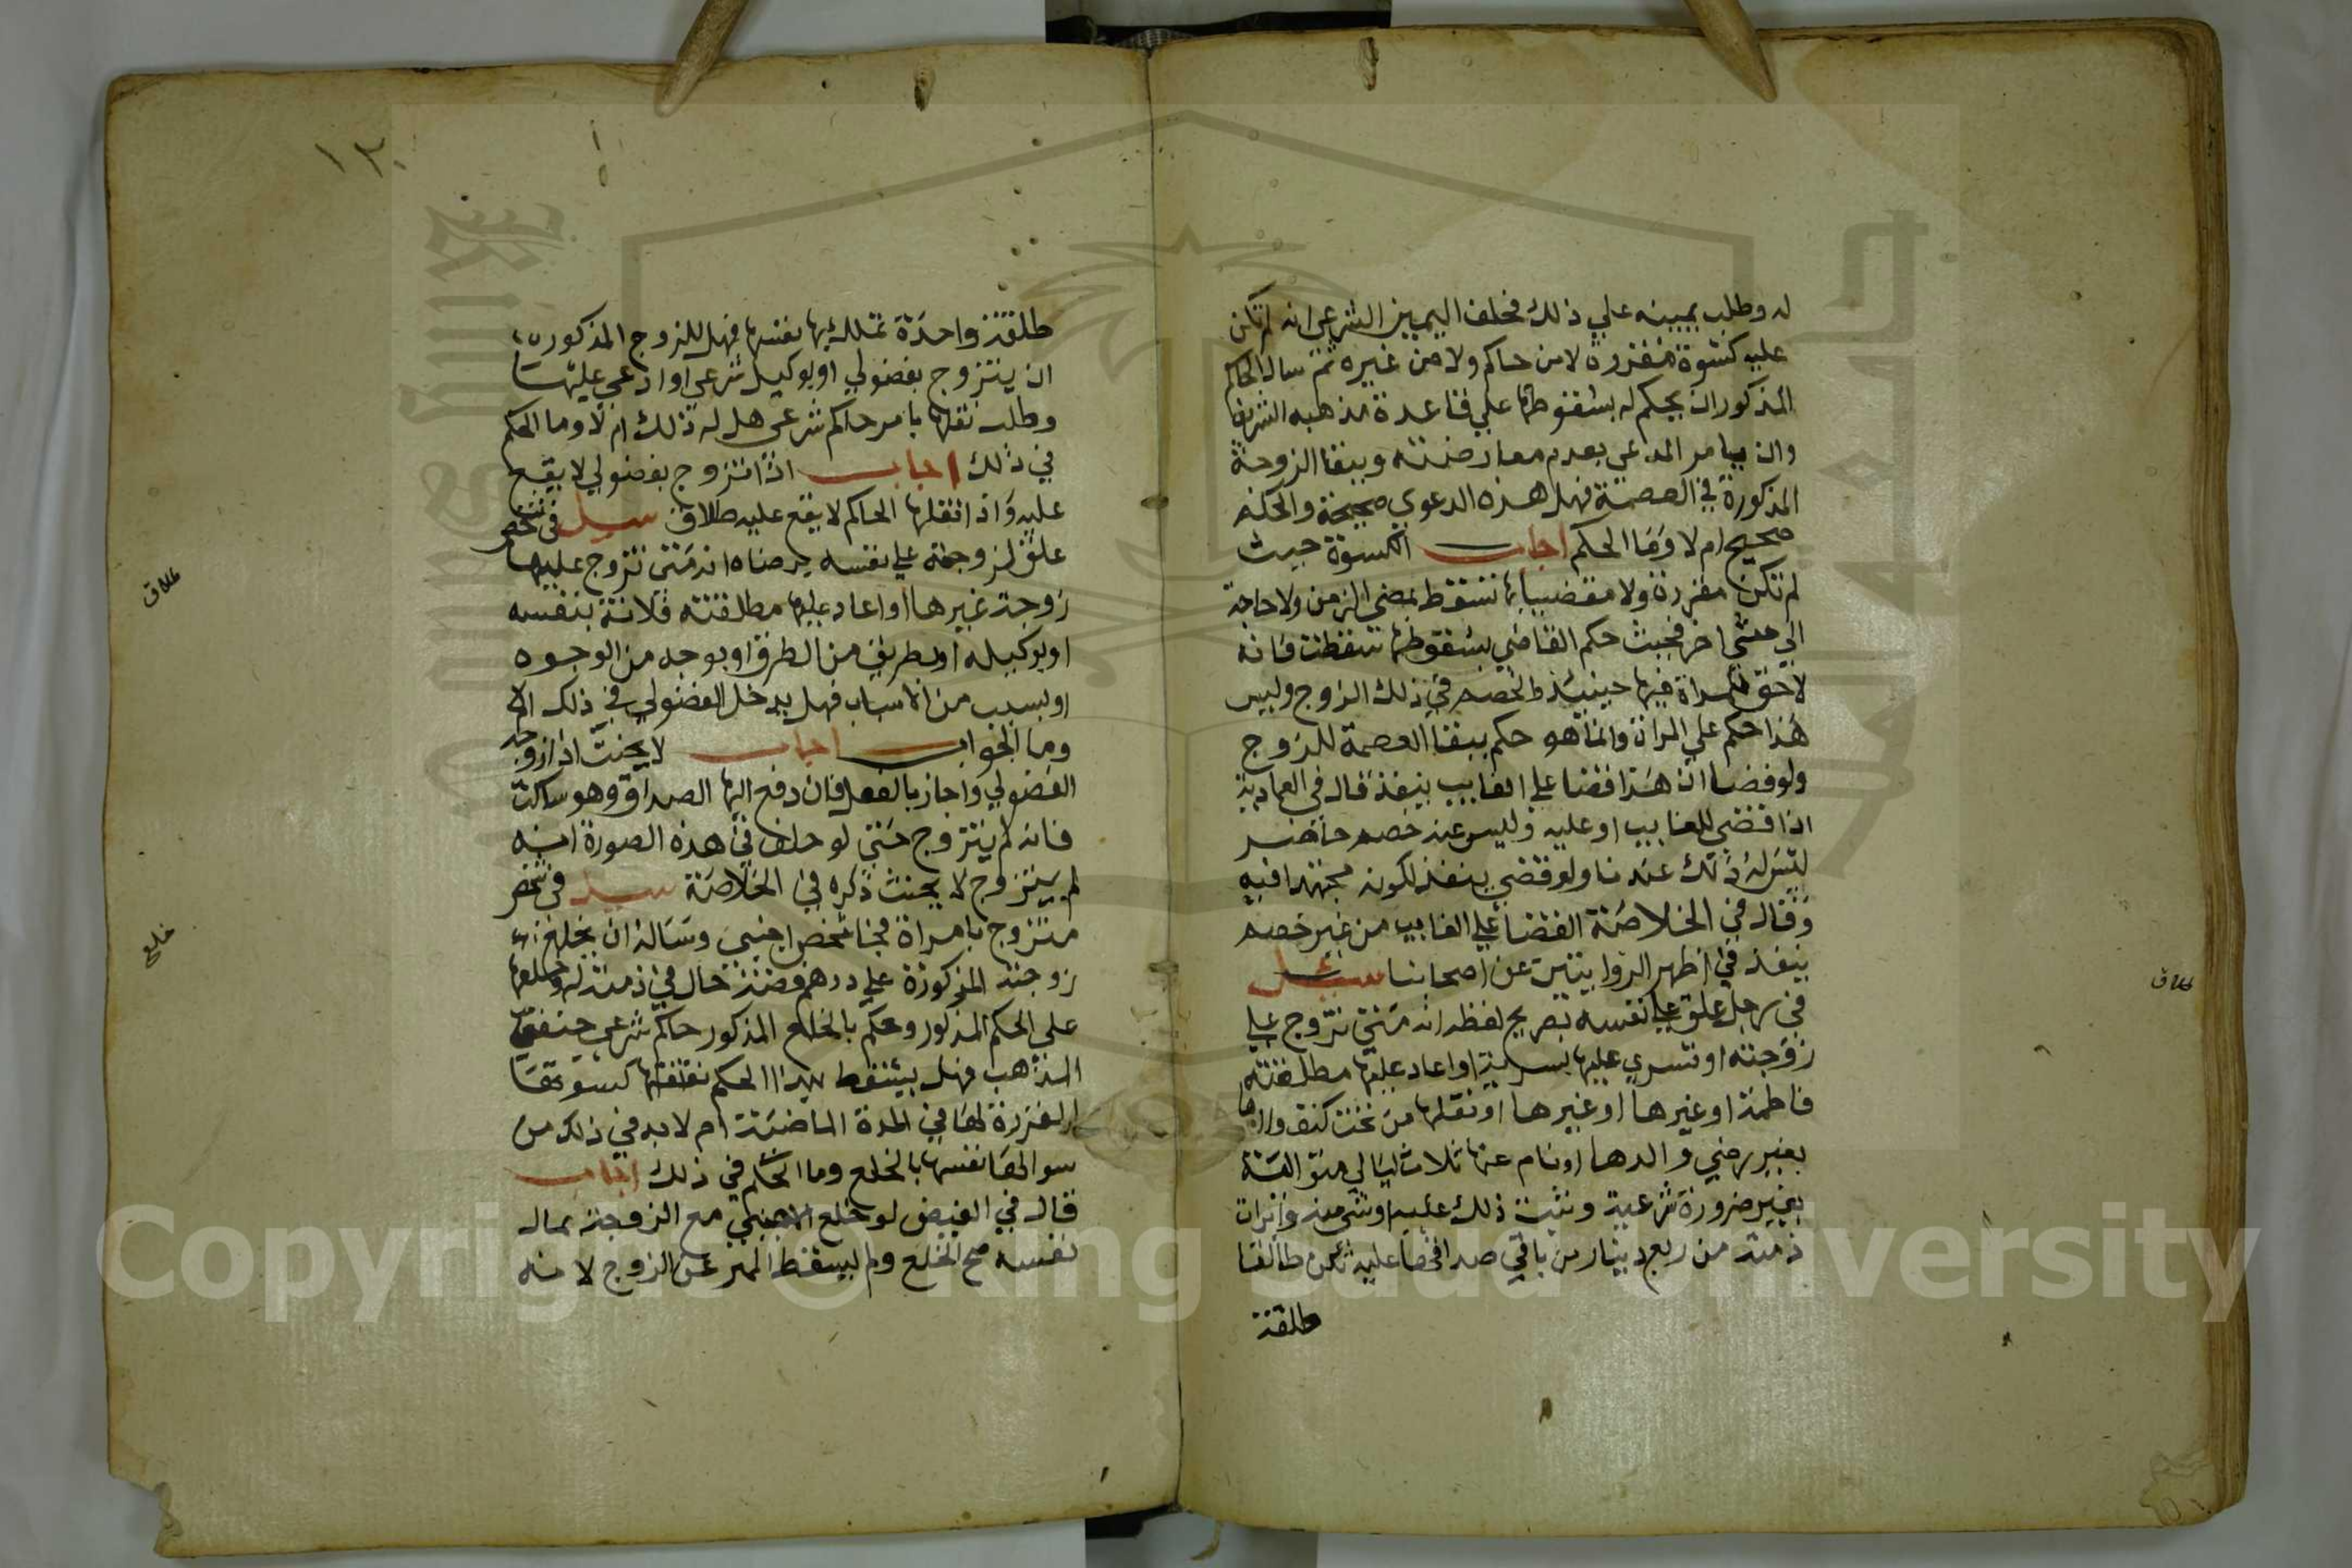 له وطلب يمينه علي ذلك فحلف اليمين الشرعي انه لم تكن
عليه كسوة مقررة لا من حاكم ولا من غيره ثم سال الحاكم
المذكور ان يحكم له بسقوطها علي قاعدة مذهبه الشريف
وان يامر المدعي بعدم معارضته وببقا الزوجة
المذكورة في العصمة فهل هذه الدعوي صحيحة والحكم
صحيح ام لا وما الحكم اجاب الكسوة حيث
لم تكن مقررة ولا مقضيا بها تسقط بمضي الزمن ولا حاجة
الي شي اخر فحيث حكم القاضي بسقوطها سقطت فانه
لا حق للمراة فيها حينيذ والخصم في ذلك الزوج وليس
هذا حكم علي المراة وانما هو حكم ببقا العصمة للزوج
ولو فرضنا ان هذا قضا علي الغايب ينفذ قال في العمادية
اذا قضي للغايب او عليه وليس عنه خصم حاضر
ليس له ذلك عندنا ولو قضي ينفذ لكونه مجتهدا فيه
وقال في الخلاصة القضا علي الغايب من غير خصم
ينفذ في اظهر الروايتين عن اصحابنا سيل
في رجل علق علي نفسه بصريح لفظه انه متي تزوج علي
زوجته او تسري عليها بسرية او اعاد عليها مطلقته
فاطمة او غيرها او غيرها او نقلها من تحت كنف والدها
بغير رضي والدها او نام عنها ثلاث ليالي متوالية
بغير ضرورة شرعية وثبت ذلك عليه او شي منه وابرات
ذمته من ربع دينار من باقي صداقها عليه تكن طالقا
طلقة
١٣٠
طلقة واحدة تملك بها نفسها فهل للزوج المذكور
ان يتزوج بفضولي او بوكيل شرعي او ادعي عليها
وطلب نقلها بامر حاكم شرعي هل له ذلك ام لا وما الحكم
في ذلك اجاب اذا تزوج بفضولي لا يقع
عليه واذا نقلها الحاكم لا يقع عليه طلاق سيل في شخص
علق لزوجته علي نفسه برضاه انه متي تزوج عليها
زوجة غيرها او اعاد عليها مطلقته فلانة بنفسه
او بوكيله او بطريق من الطرق او بوجه من الوجوه
او بسبب من الاسباب فهل يدخل الفضولي في ذلك ام لا
وما الجواب اجاب لا يحنث اذا زوجه
الفضولي واجاز بالفعل فان دفع اليها الصداق وهو ساكت
فانه لم يتزوج حتي لو حلف في هذه الصورة انه
لم يتزوج لا يحنث ذكره في الخلاصة سيل في شخص
متزوج بامراة فجا شخص اجنبي وساله ان يخلع
زوجته المذكورة علي درهم فضة حال في ذمته له وخلعها
علي الحكم المذكور وحكم بالخلع المذكور حاكم شرعي حنفي
المذهب فهل يسقط بهذا الحكم نفقتها كسوتها
المقررة لها في المدة الماضية ام لا بد في ذلك من
سوالها نفسها بالخلع وما الحكم في ذلك اجاب
قال في الفيض لو خلع الاجنبي مع الزوجة بمال
نفسه صح الخلع ولم يسقط المهر عن الزوج لانه
طلاق
خلع
طلاق
Copyright © King Saud University